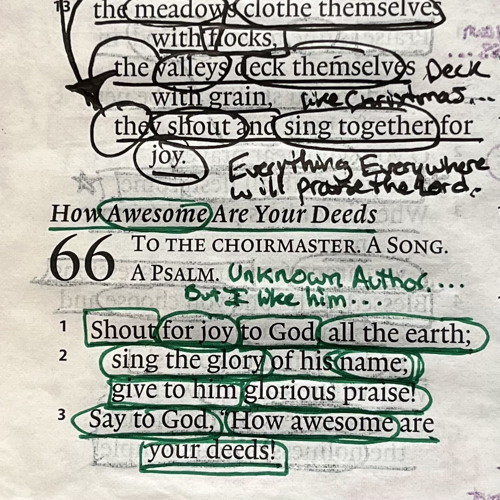 13 the meadows clothe themselves
with flocks,
the valleys deck themselves Deck
with grain, like Christmas...
they shout and sing together for
joy. Everything Everywhere
will praise the Lord.
How Awesome Are Your Deeds
66 TO THE CHOIRMASTER. A SONG.
A PSALM. Unknown Author....
But I like him...
1 Shout for joy to God, all the earth;
2 sing the glory of his name;
give to him glorious praise!
3 Say to God, "How awesome are
your deeds!